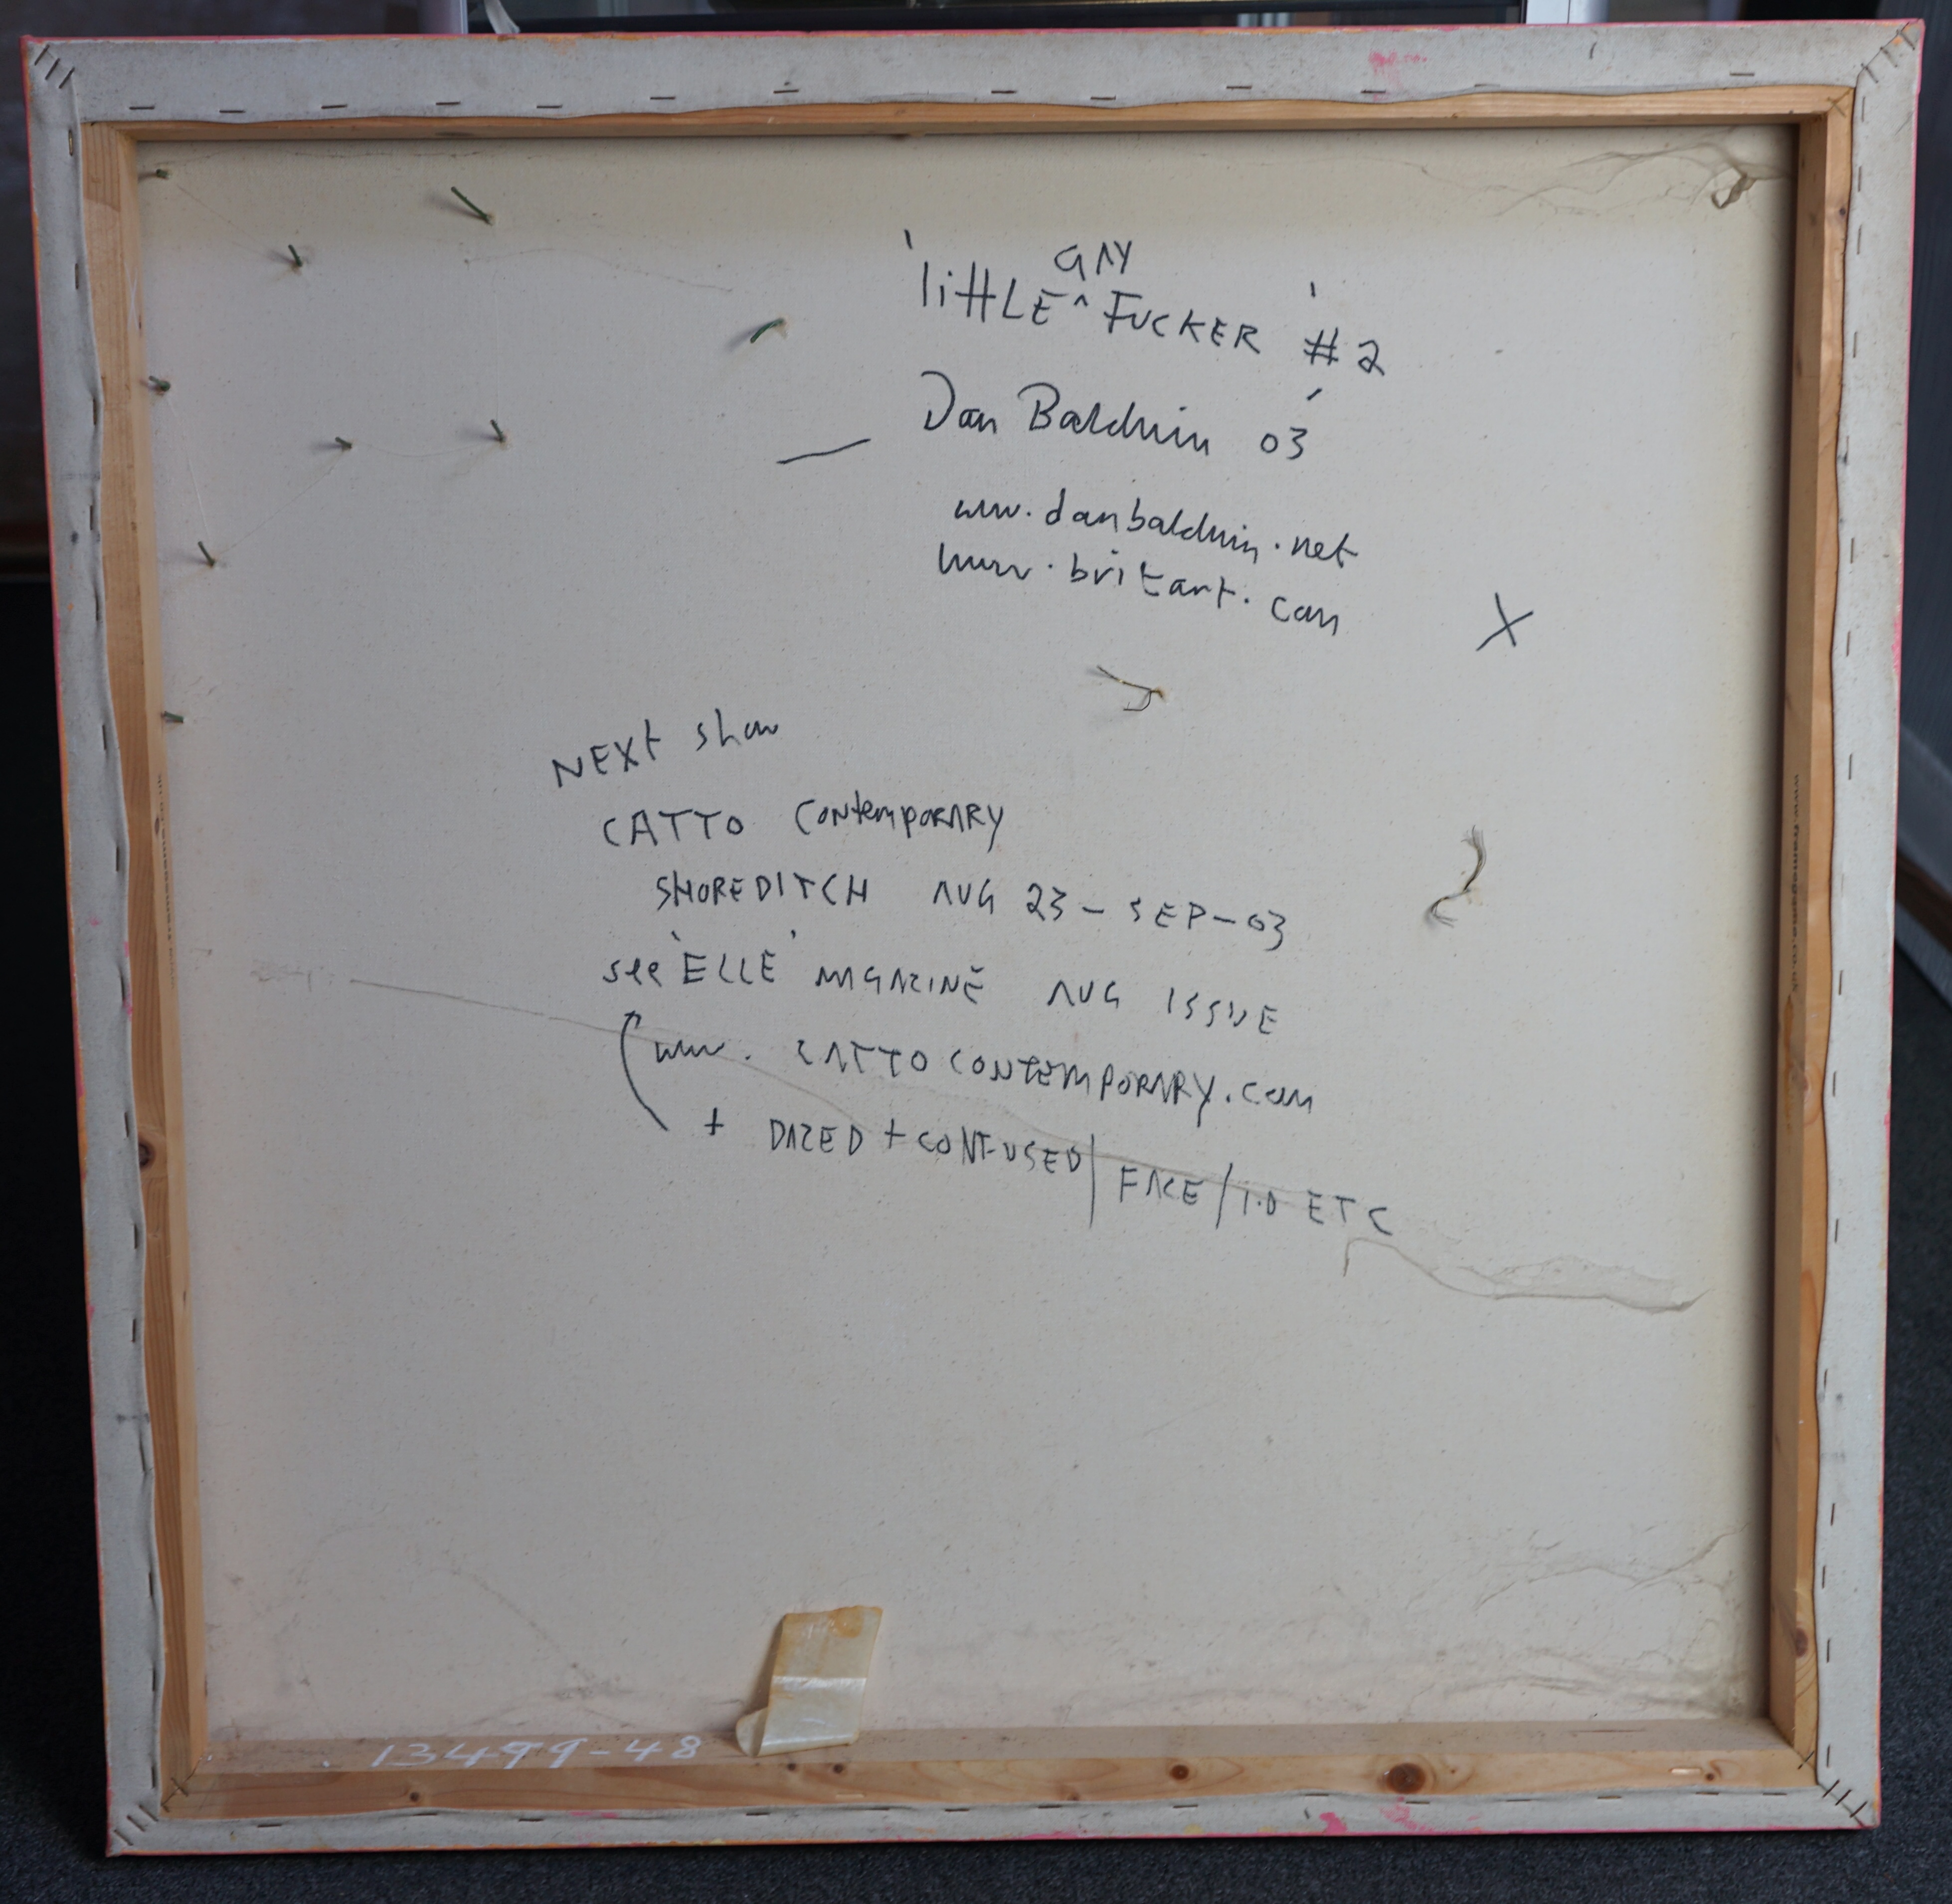 GAY
'littLE ^ FUCKER' #2
Dan Baldwin '03
www.danbaldwin.net
www.britart.com
X
NEXt show
CATTO ContemporARY
SHOREDITCH AUG 23 - SEP - 03
see 'ELLE' MAGAZINE AUG ISSUE
www. CATTO CONTEMPORARY.com
+ DAZED + CONFUSED / FACE / I.D ETC
13499-48